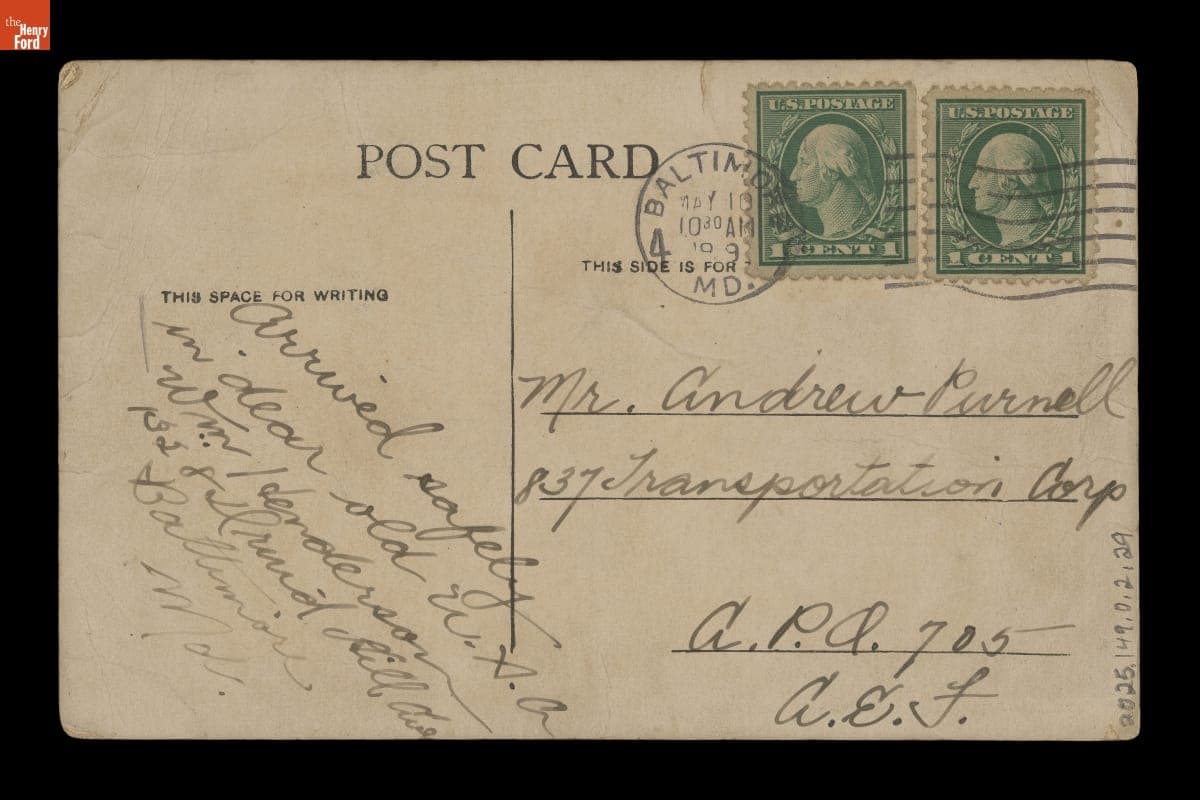 the
Henry
Ford
POST CARD
U.S.POSTAGE
1 CENT 1
U.S.POSTAGE
1 CENT 1
BALTIMORE
MAY 10
10 30 AM
4
MD.
THIS SIDE IS FOR
THIS SPACE FOR WRITING
Arrived safely
in dear old U.S.A
Wm Henderson
1328 Druid Hill Ave
Baltimore
Md.
Mr. Andrew Purnell
837 Transportation Corp
A.P.O. 705
A.E.F.
2025.149.0.2.29